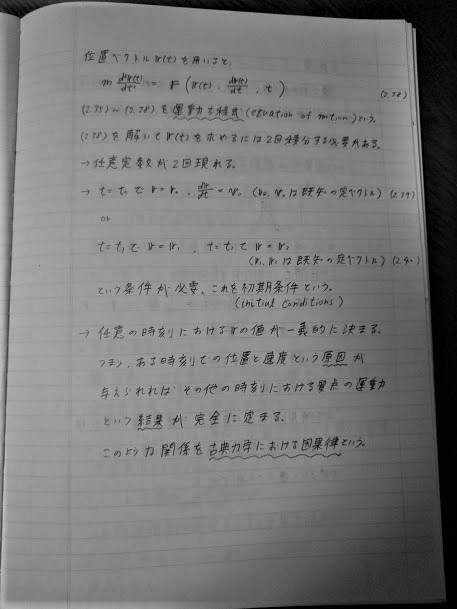 位置ベクトル𝕣(t)を用いると、
m d𝕣(t)/dt = 𝔽(𝕣(t), d𝕣(t)/dt, t) (2.38)
(2.35)~(2.38)を運動方程式(equation of motion)という。
(2.38)を解いて𝕣(t)を求めるには2回積分する必要がある。
→ 任意定数が2回現れる。
→ t=t₀で𝕣=𝕣₀, d𝕣/dt=𝕧₀ (𝕣₀, 𝕧₀は既知の定ベクトル) (2.39)
or
t=t₁で𝕣=𝕣₁, t=t₂で𝕣=𝕣₂
(𝕣₁, 𝕣₂は既知の定ベクトル) (2.40)
という条件が必要。これを初期条件という。
(initial conditions)
→ 任意の時刻における𝕣の値が一義的に決まる。
つまり、ある時刻での位置と速度という原因が
与えられれば、その他の時刻における質点の運動
という結果が完全に定まる。
このような関係を古典力学における因果律という。